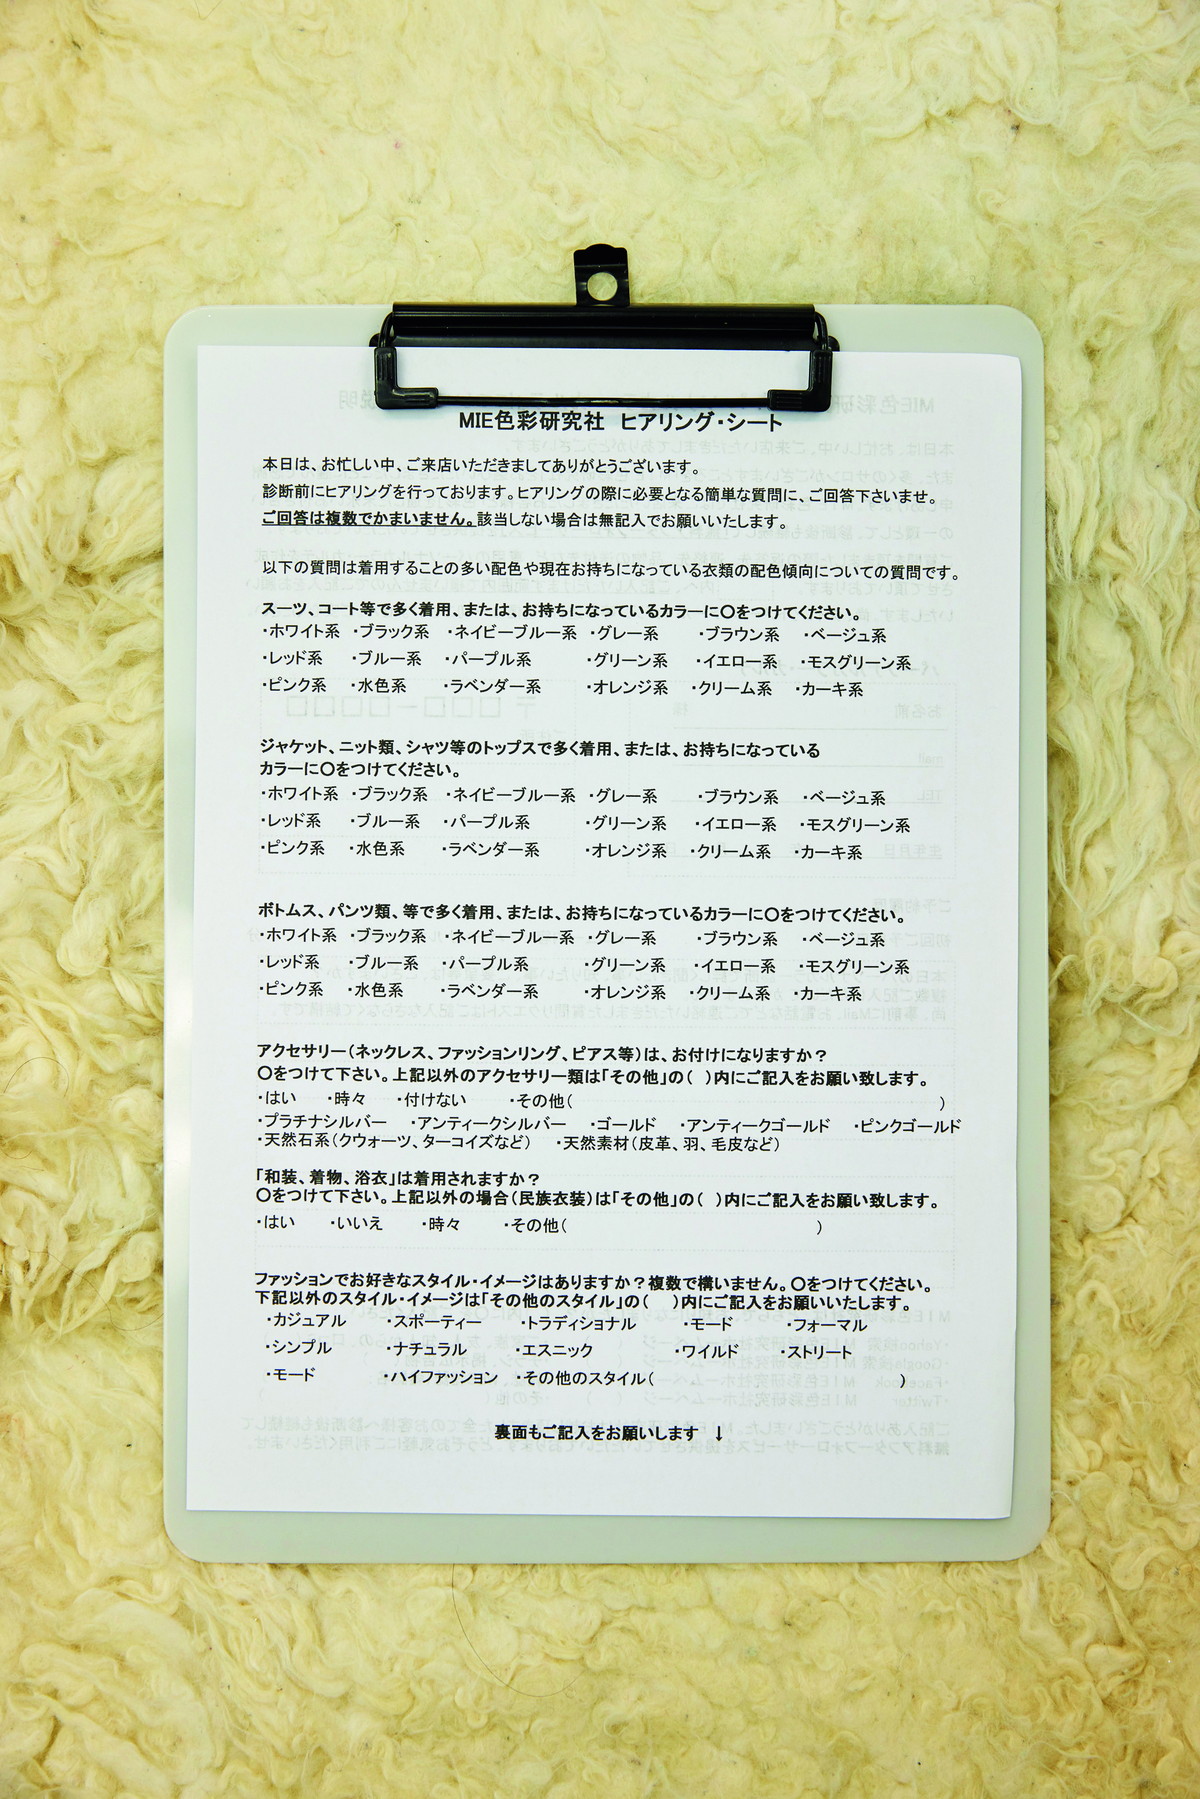 MIE色彩研究社 ヒアリング・シート
本日は、お忙しい中、ご来店いただきましてありがとうございます。
診断前にヒアリングを行っております。ヒアリングの際に必要となる簡単な質問に、ご回答下さいませ。
ご回答は複数でかまいません。該当しない場合は無記入でお願いいたします。
以下の質問は着用することの多い配色や現在お持ちになっている衣類の配色傾向についての質問です。
スーツ、コート等で多く着用、または、お持ちになっているカラーに〇をつけてください。
・ホワイト系 ・ブラック系 ・ネイビーブルー系 ・グレー系 ・ブラウン系 ・ベージュ系
・レッド系 ・ブルー系 ・パープル系 ・グリーン系 ・イエロー系 ・モスグリーン系
・ピンク系 ・水色系 ・ラベンダー系 ・オレンジ系 ・クリーム系 ・カーキ系
ジャケット、ニット類、シャツ等のトップスで多く着用、または、お持ちになっている
カラーに〇をつけてください。
・ホワイト系 ・ブラック系 ・ネイビーブルー系 ・グレー系 ・ブラウン系 ・ベージュ系
・レッド系 ・ブルー系 ・パープル系 ・グリーン系 ・イエロー系 ・モスグリーン系
・ピンク系 ・水色系 ・ラベンダー系 ・オレンジ系 ・クリーム系 ・カーキ系
ボトムス、パンツ類、等で多く着用、または、お持ちになっているカラーに〇をつけてください。
・ホワイト系 ・ブラック系 ・ネイビーブルー系 ・グレー系 ・ブラウン系 ・ベージュ系
・レッド系 ・ブルー系 ・パープル系 ・グリーン系 ・イエロー系 ・モスグリーン系
・ピンク系 ・水色系 ・ラベンダー系 ・オレンジ系 ・クリーム系 ・カーキ系
アクセサリー(ネックレス、ファッションリング、ピアス等)は、お付けになりますか?
〇をつけて下さい。上記以外のアクセサリー類は「その他」の( )内にご記入をお願い致します。
・はい ・時々 ・付けない ・その他( )
・プラチナシルバー ・アンティークシルバー ・ゴールド ・アンティークゴールド ・ピンクゴールド
・天然石系(クウォーツ、ターコイズなど) ・天然素材(皮革、羽、毛皮など)
「和装、着物、浴衣」は着用されますか?
〇をつけて下さい。上記以外の場合(民族衣装)は「その他」の( )内にご記入をお願い致します。
・はい ・いいえ ・時々 ・その他( )
ファッションでお好きなスタイル・イメージはありますか?複数で構いません。〇をつけてください。
下記以外のスタイル・イメージは「その他のスタイル」の( )内にご記入をお願いいたします。
・カジュアル ・スポーティー ・トラディショナル ・モード ・フォーマル
・シンプル ・ナチュラル ・エスニック ・ワイルド ・ストリート
・モード ・ハイファッション ・その他のスタイル( )
裏面もご記入をお願いします ↓